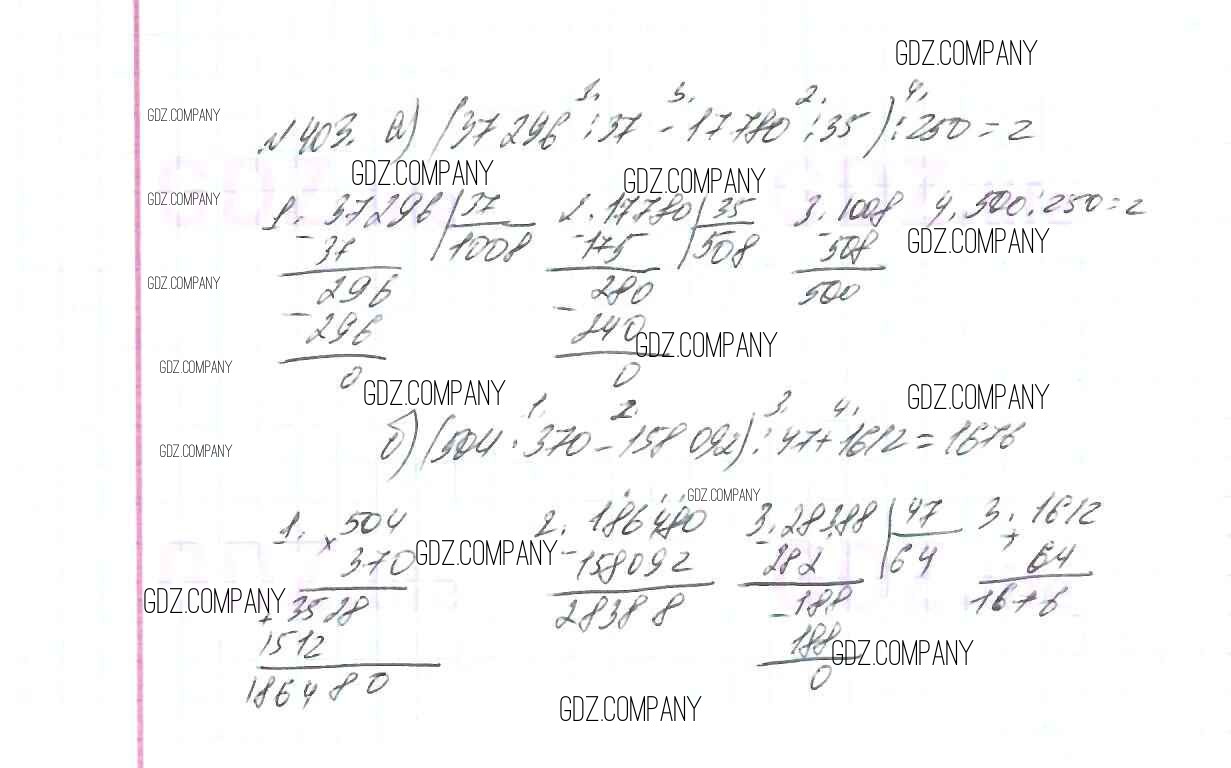 GDZ.COMPANY
1. 3. 2. 4.
GDZ.COMPANY
№403. а) (37296 : 37 - 17780 : 35) : 250 = 2
GDZ.COMPANY GDZ.COMPANY
GDZ.COMPANY
1. 37296 37 2. 17780 35 3. 1008 4. 500 : 250 = 2
- 37 1008 - 175 508 - 508 GDZ.COMPANY
GDZ.COMPANY 296 280 500
- 296 - 240 GDZ.COMPANY
GDZ.COMPANY 0 0
GDZ.COMPANY GDZ.COMPANY
1. 2. 3. 4.
б) (504 · 370 - 158 092) : 47 + 1612 = 1676
GDZ.COMPANY
GDZ.COMPANY
1. × 504 2. 186480 3. 28388 47 3. 1612
370 GDZ.COMPANY - 158092 - 282 64 + 64
GDZ.COMPANY + 3528 28388 - 188 1676
1512 188 GDZ.COMPANY
186480 0
GDZ.COMPANY